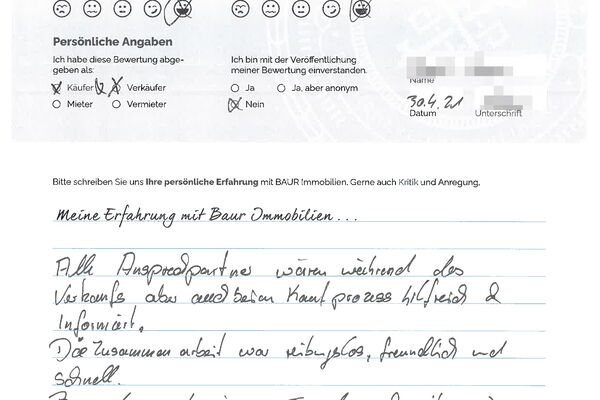 Persönliche Angaben
Ich habe diese Bewertung abge-
geben als:
Käufer
Verkäufer
Mieter
Vermieter
Ich bin mit der Veröffentlichung
meiner Bewertung einverstanden.
Ja
Ja, aber anonym
Nein
Name
30.4.21
Datum
Unterschrift
Bitte schreiben Sie uns Ihre persönliche Erfahrung mit BAUR Immobilien. Gerne auch Kritik und Anregung.
Meine Erfahrung mit Baur Immobilien ...
Alle Ansprechpartner wären während des
Verkaufs aber auch beim Kaufprozess hilfreich &
Informiert.
Die Zusammenarbeit war reibungslos, freundlich und
schnell.